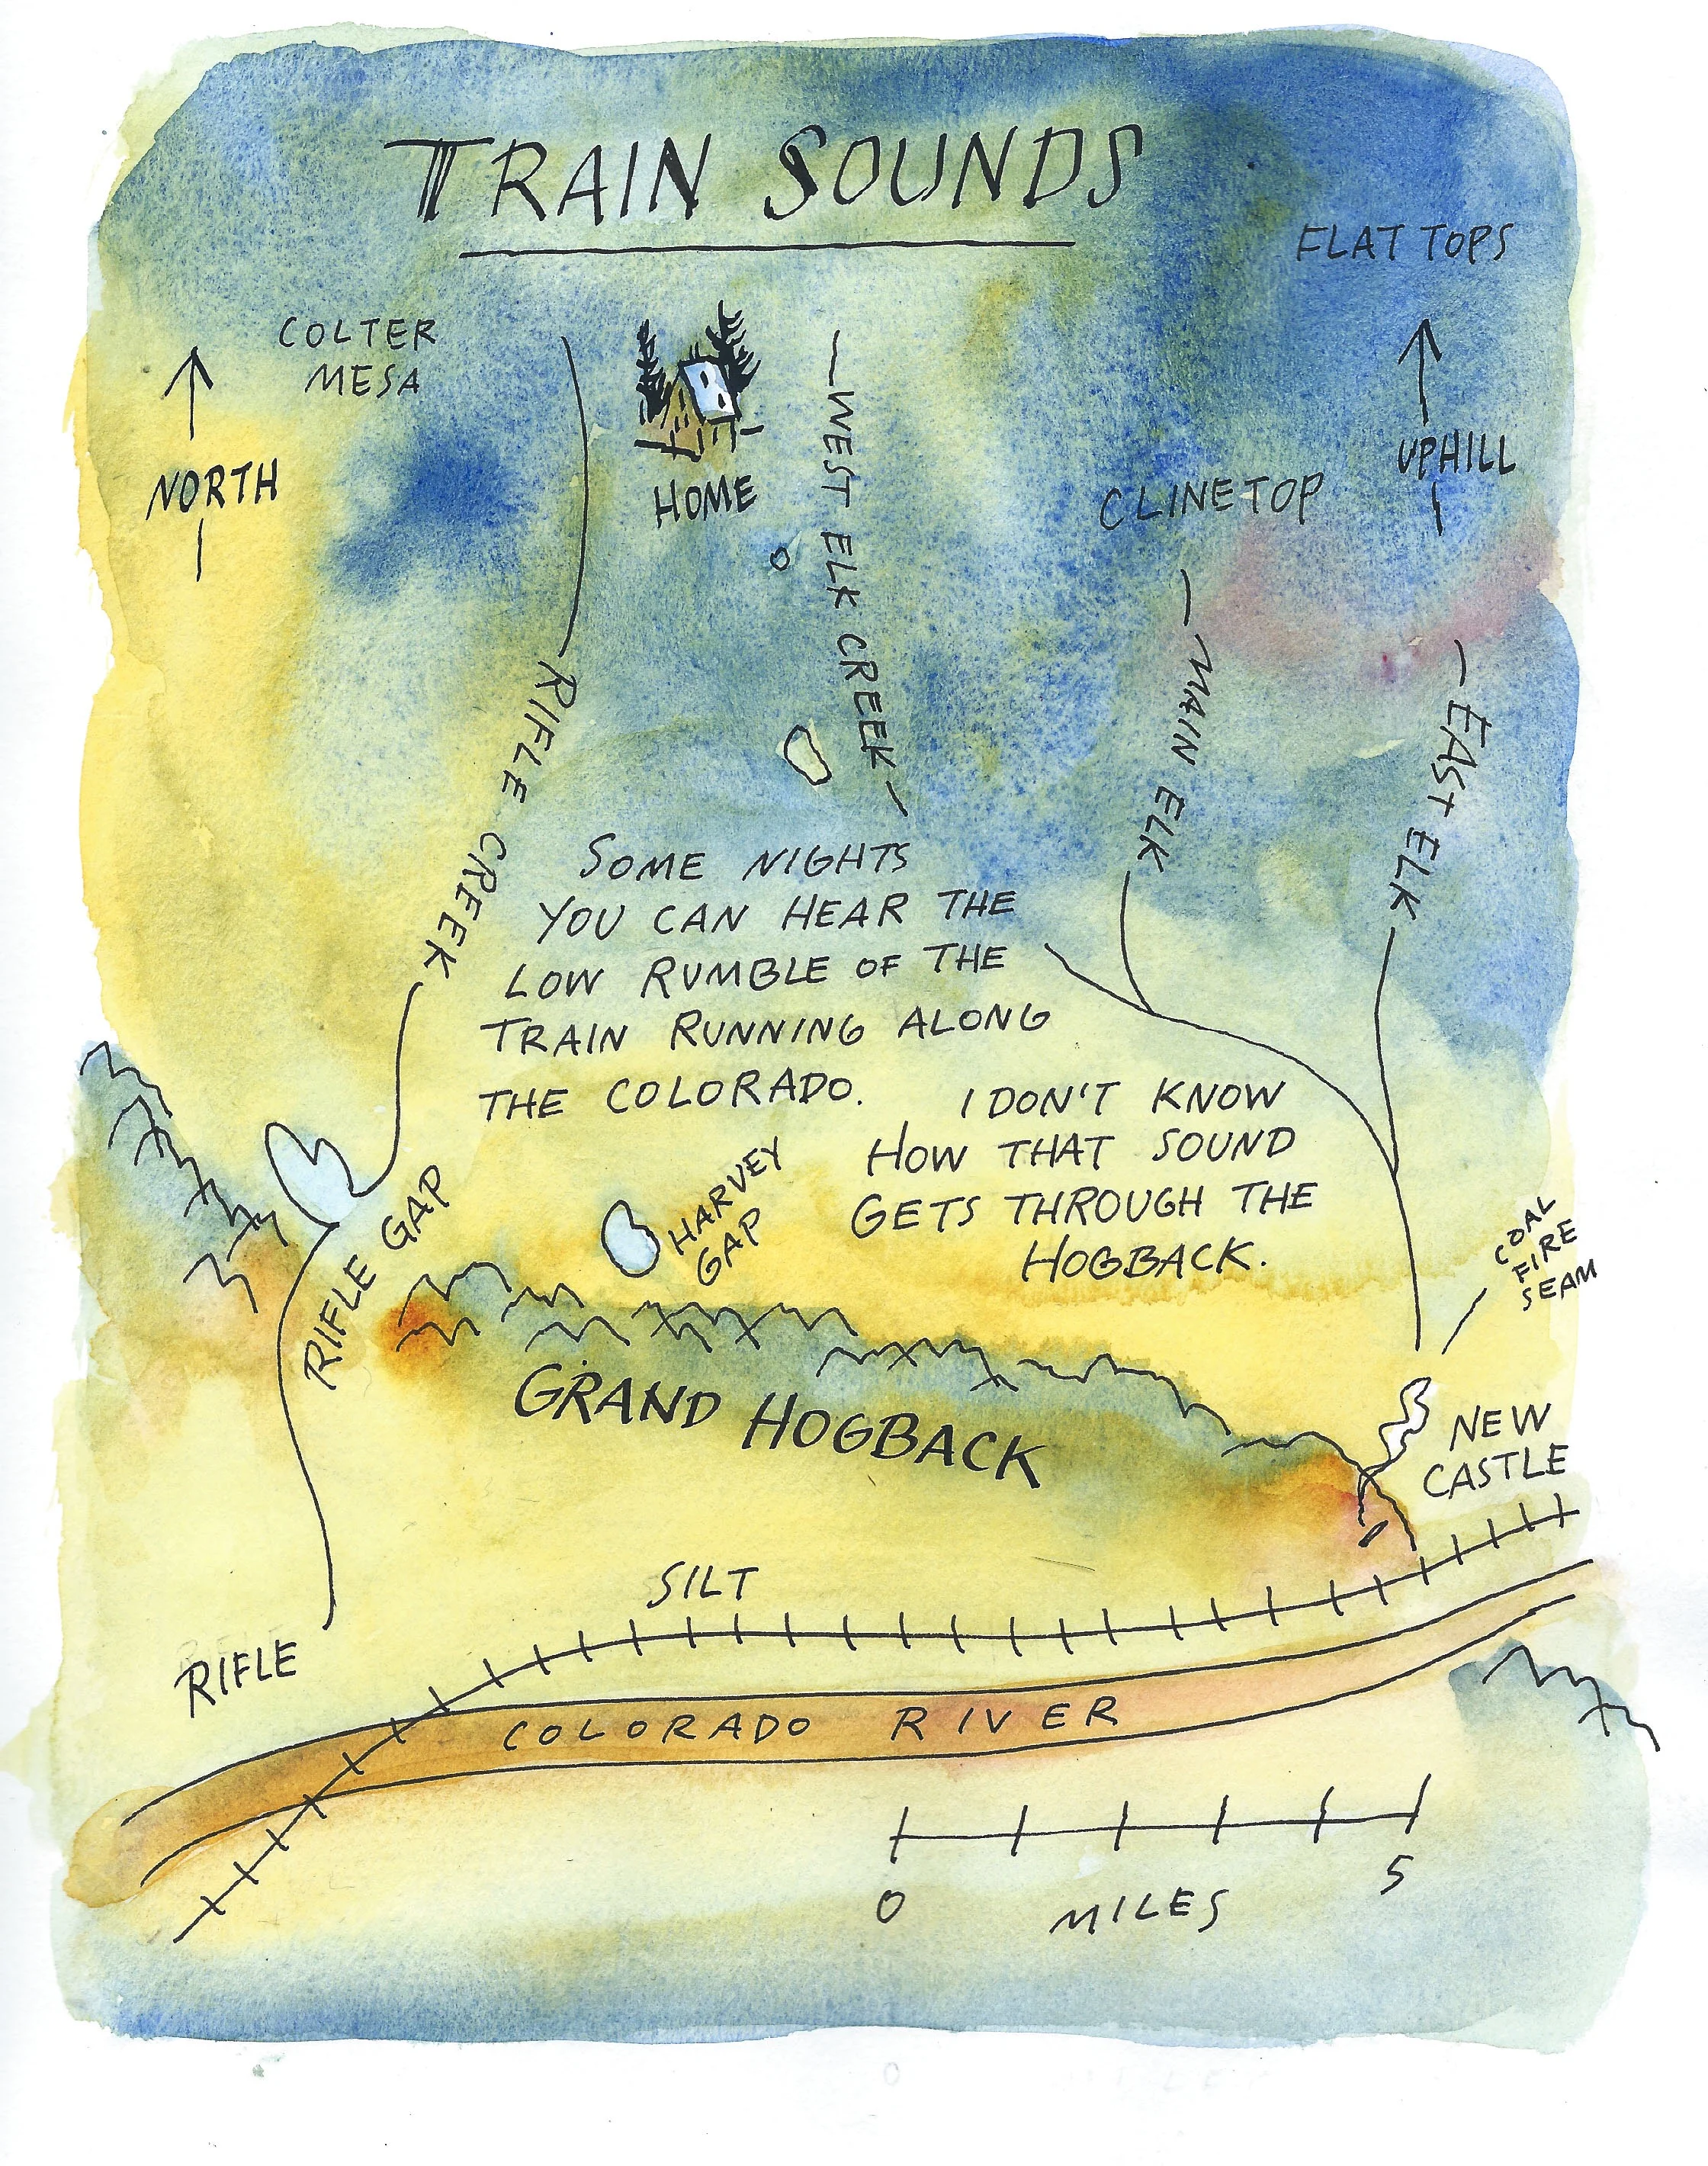 TRAIN SOUNDS
FLAT TOPS
COLTER
MESA
NORTH
HOME
UPHILL
CLINETOP
WEST ELK CREEK
RIFLE CREEK
MAIN ELK
EAST ELK
SOME NIGHTS
YOU CAN HEAR THE
LOW RUMBLE OF THE
TRAIN RUNNING ALONG
THE COLORADO.
I DON'T KNOW
HOW THAT SOUND
GETS THROUGH THE
HOGBACK.
HARVEY
GAP
RIFLE GAP
COAL
FIRE
SEAM
GRAND HOGBACK
NEW
CASTLE
SILT
RIFLE
COLORADO RIVER
0 5
MILES